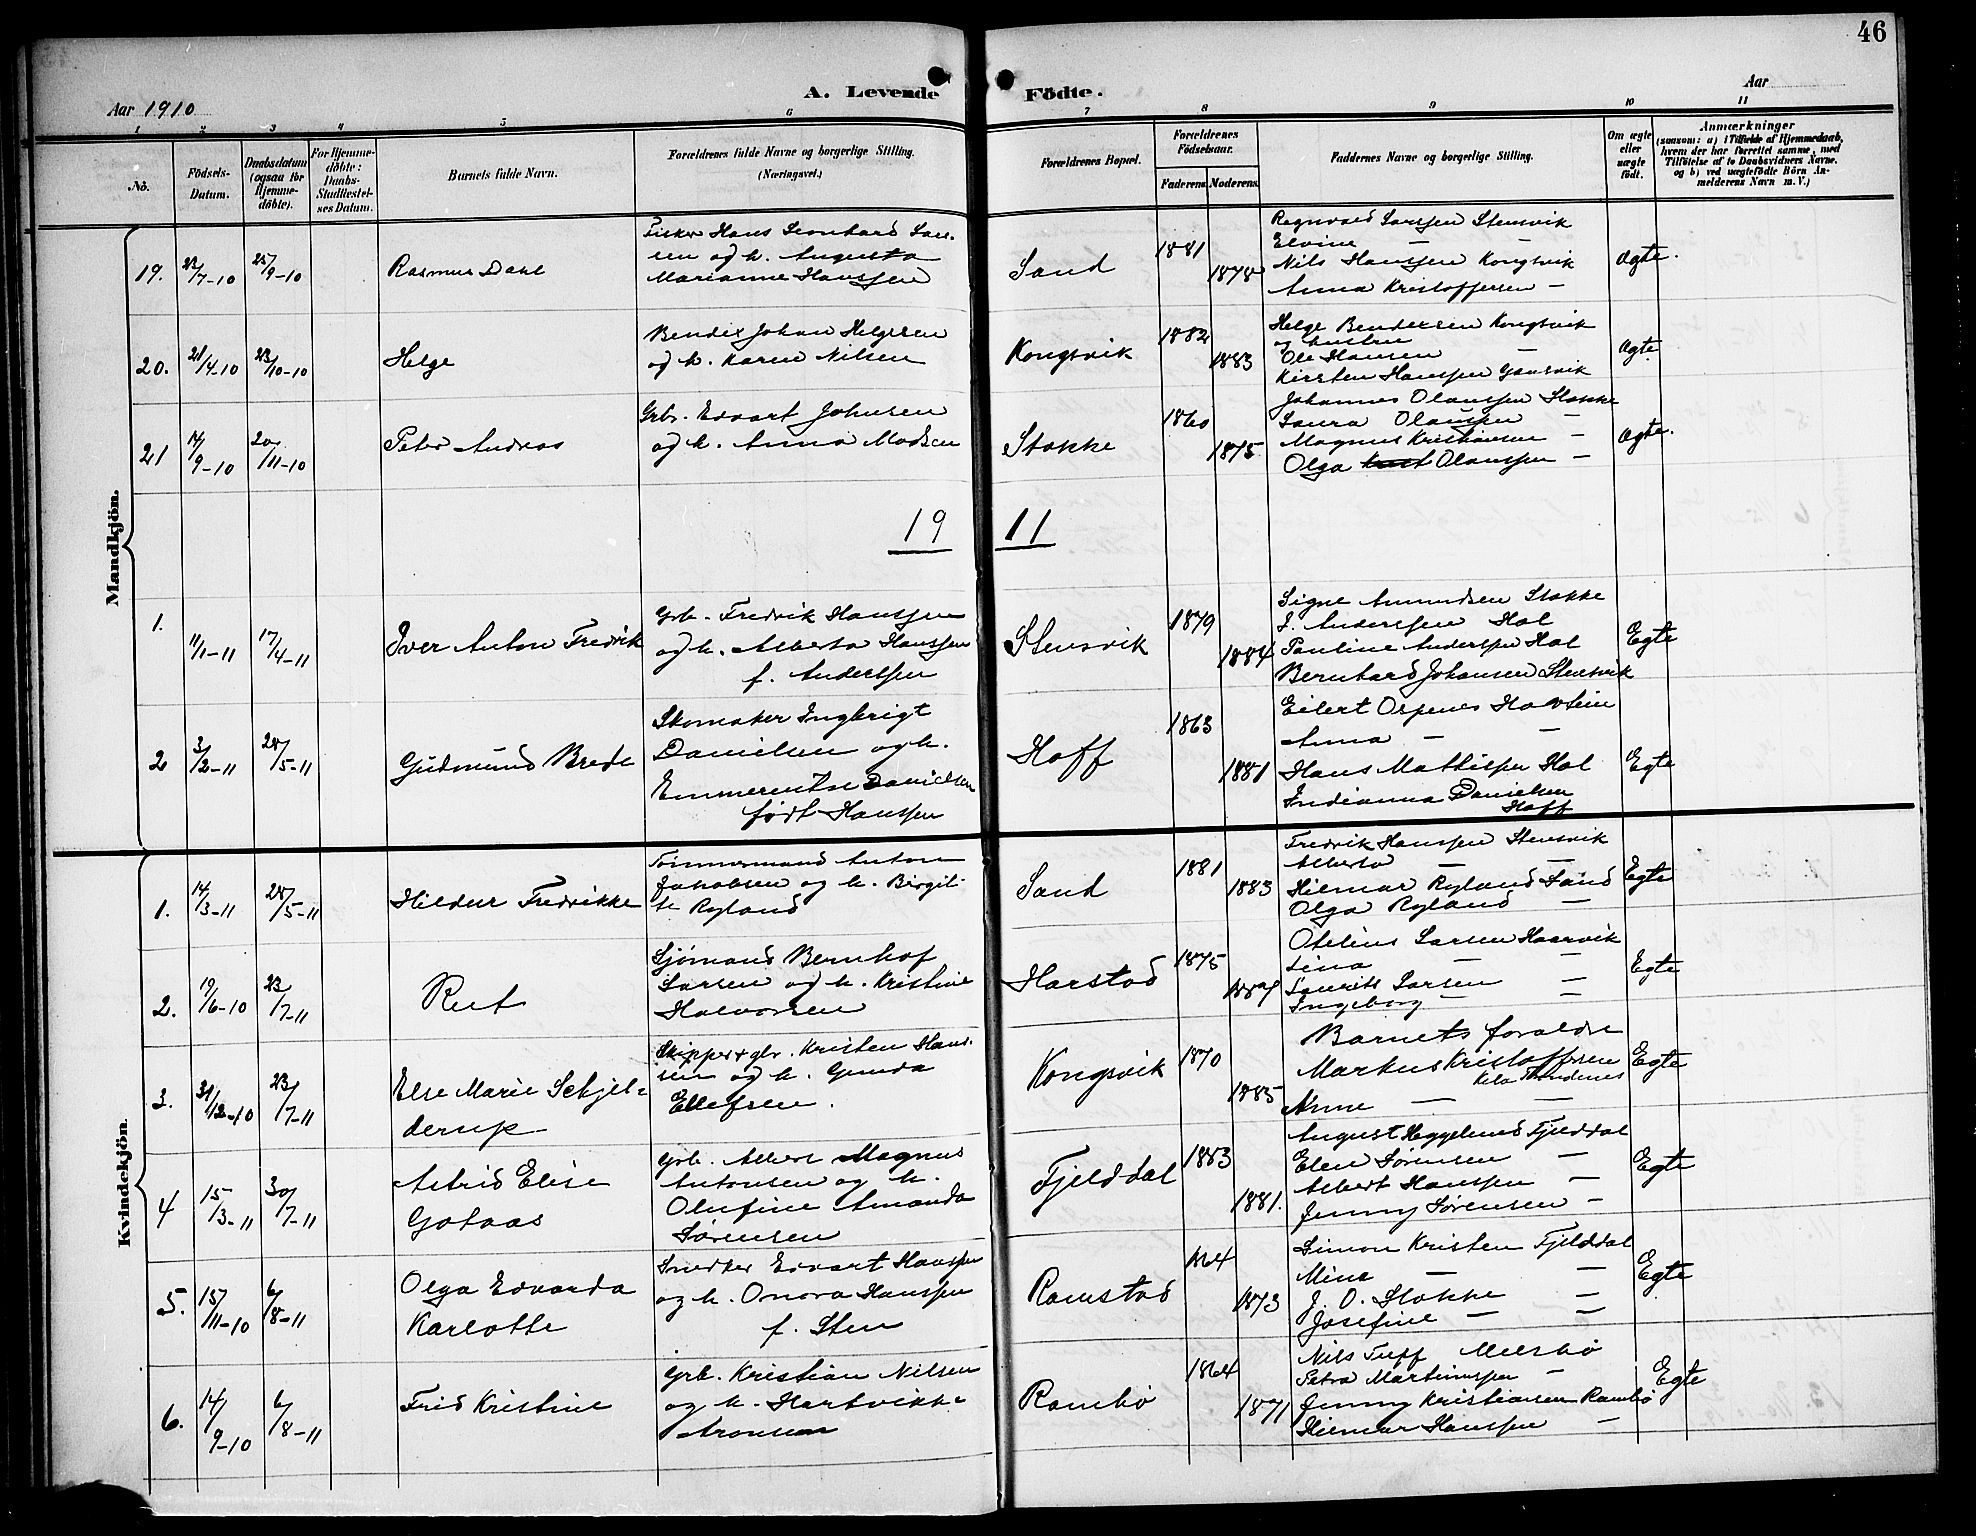 46
Aar 1910
A. Levende Födte.
Aar
1 2 3 4 5 6 7 8 9 10 11
No.
Födsels-Datum.
Daabsdatum (ogsaa for Hjemme-döbte).
For Hjemme-döbte: Daabs-Stadfæstel-ses Datum.
Barnets fulde Navn.
Forældrenes fulde Navne og borgerlige Stilling. (Næringsvei.)
Forældrenes Bopæl.
Forældrenes Födselsaar.
Faderens. Moderens.
Faddernes Navne og borgerlige Stilling.
Om ægte eller uægte födt.
Anmærkninger
(saasom: a) i Tilfælde af Hjemmedaab,
hvem der har forrettet samme, med
Tilföielse af to Daabsvidners Navne,
og b) ved uægtefödte Börn An-
melderens Navn m. V.)
Mandkjön.
19. 23/7-10 25/9-10
Rasmus Dahl
Fisker Hans Leonhard Lars-
sen og h. Augusta
Marianne Hanssen
Sand
1881
1878
Ragnvald Larssen Stensvik
Elvine — —
Nils Hanssen Kongsvik
Anna Kristoffersen —
Ægte.
20. 21/4-10 23/10-10
Helge
Bendix Johan Helgesen
og h. Karen Nilsen
Kongsvik
1882
1883
Helge Bendixsen Kongsvik
og hustru
Ole Hansen —
Kirsten Hanssen Gausvik
Ægte
21 14/9-10 20/11-10
Peter Andreas
Grb. Edvart Johnsen
og h. Anna Madsen
Stokke
1860
1875
Johannes Olaussen Stokke
Laura Olaussen —
Magnus Kristiansen —
Olga Olaussen —
Ægte.
19 11
1. 11/1-11 17/4-11
Iver Anton Fredrik
Grb. Fredrik Hanssen
og h. Alberta Hanssen
f. Anderssen
Stensvik
1879
1884
Signe Amundsen Stokke
J. Anderssen Hol
Pauline Anderssen Hol
Bernhard Johansen Stensvik
Egte
2 3/2-11 28/5-11
Gudmund Brede
Skomaker Ingbrigt
Danielsen og h.
Emmerentse Danielsen
født Hanssen
Hoff
1863
1881
Eilert Ospenes Havstein
Anna — —
Hans Mathissen Hol
Indianna Danielsen
Hoff
Egte
Kvindekjön.
1. 14/3-11 28/5-11
Hildur Fredrikke
Tømmermand Anton
Jakobsen og h. Birgit-
te Ryland
Sand
1881
1883
Fredrik Hanssen Stensvik
Alberta — —
Hilmar Ryland Sand
Olga Ryland —
Egte
2. 19/6-10 23/7-11
Rut
Sjømand Bernhof
Larsen og h. Kristine
Halvorsen
Harstad
1875
Otelius Larsen Haarvik
Lina — —
Laurits Larsen —
Ingeborg — —
Egte
3. 31/12-10 23/7-11
Else Marie Schjel-
derup
Skipper & gbr. Kristen Hans-
sen og h. Gunda
Ellefsen.
Kongsvik
1870
1885
Barnets forældre
Markus Kristoffersen
Kila Trondenes
Anne — —
Egte
4 15/3-11 30/7-11
Astrid Elise
Gotaas
Grb. Albert Magnus
Antonsen og h.
Olufine Amanda
Sørensen
Fjelddal
1883
1881.
August Heggelund Fjelddal
Elen Sørensen —
Albert Hanssen —
Jenny Sørensen —
Egte
5. 15/11-10 6/8-11
Olga Edvarda
Karlotte
Snedker Edvart Hanssen
og h. Onora Hanssen
f. Sten
Ramstad
1864
1873
Simon Kristen Fjelddal
Mina — —
J. O. Stokke —
Josefine — —
Egte
6. 14/9-10 6/8-11
Frid Kristine
Grb. Kristian Nilsen
og h. Hartvikke
Aronsen
Rambø
1864
1871
Nils Tuff Melsbø
Petra Martinussen —
Jenny Kristiansen Rambø
Hilmar Hanssen —
Egte